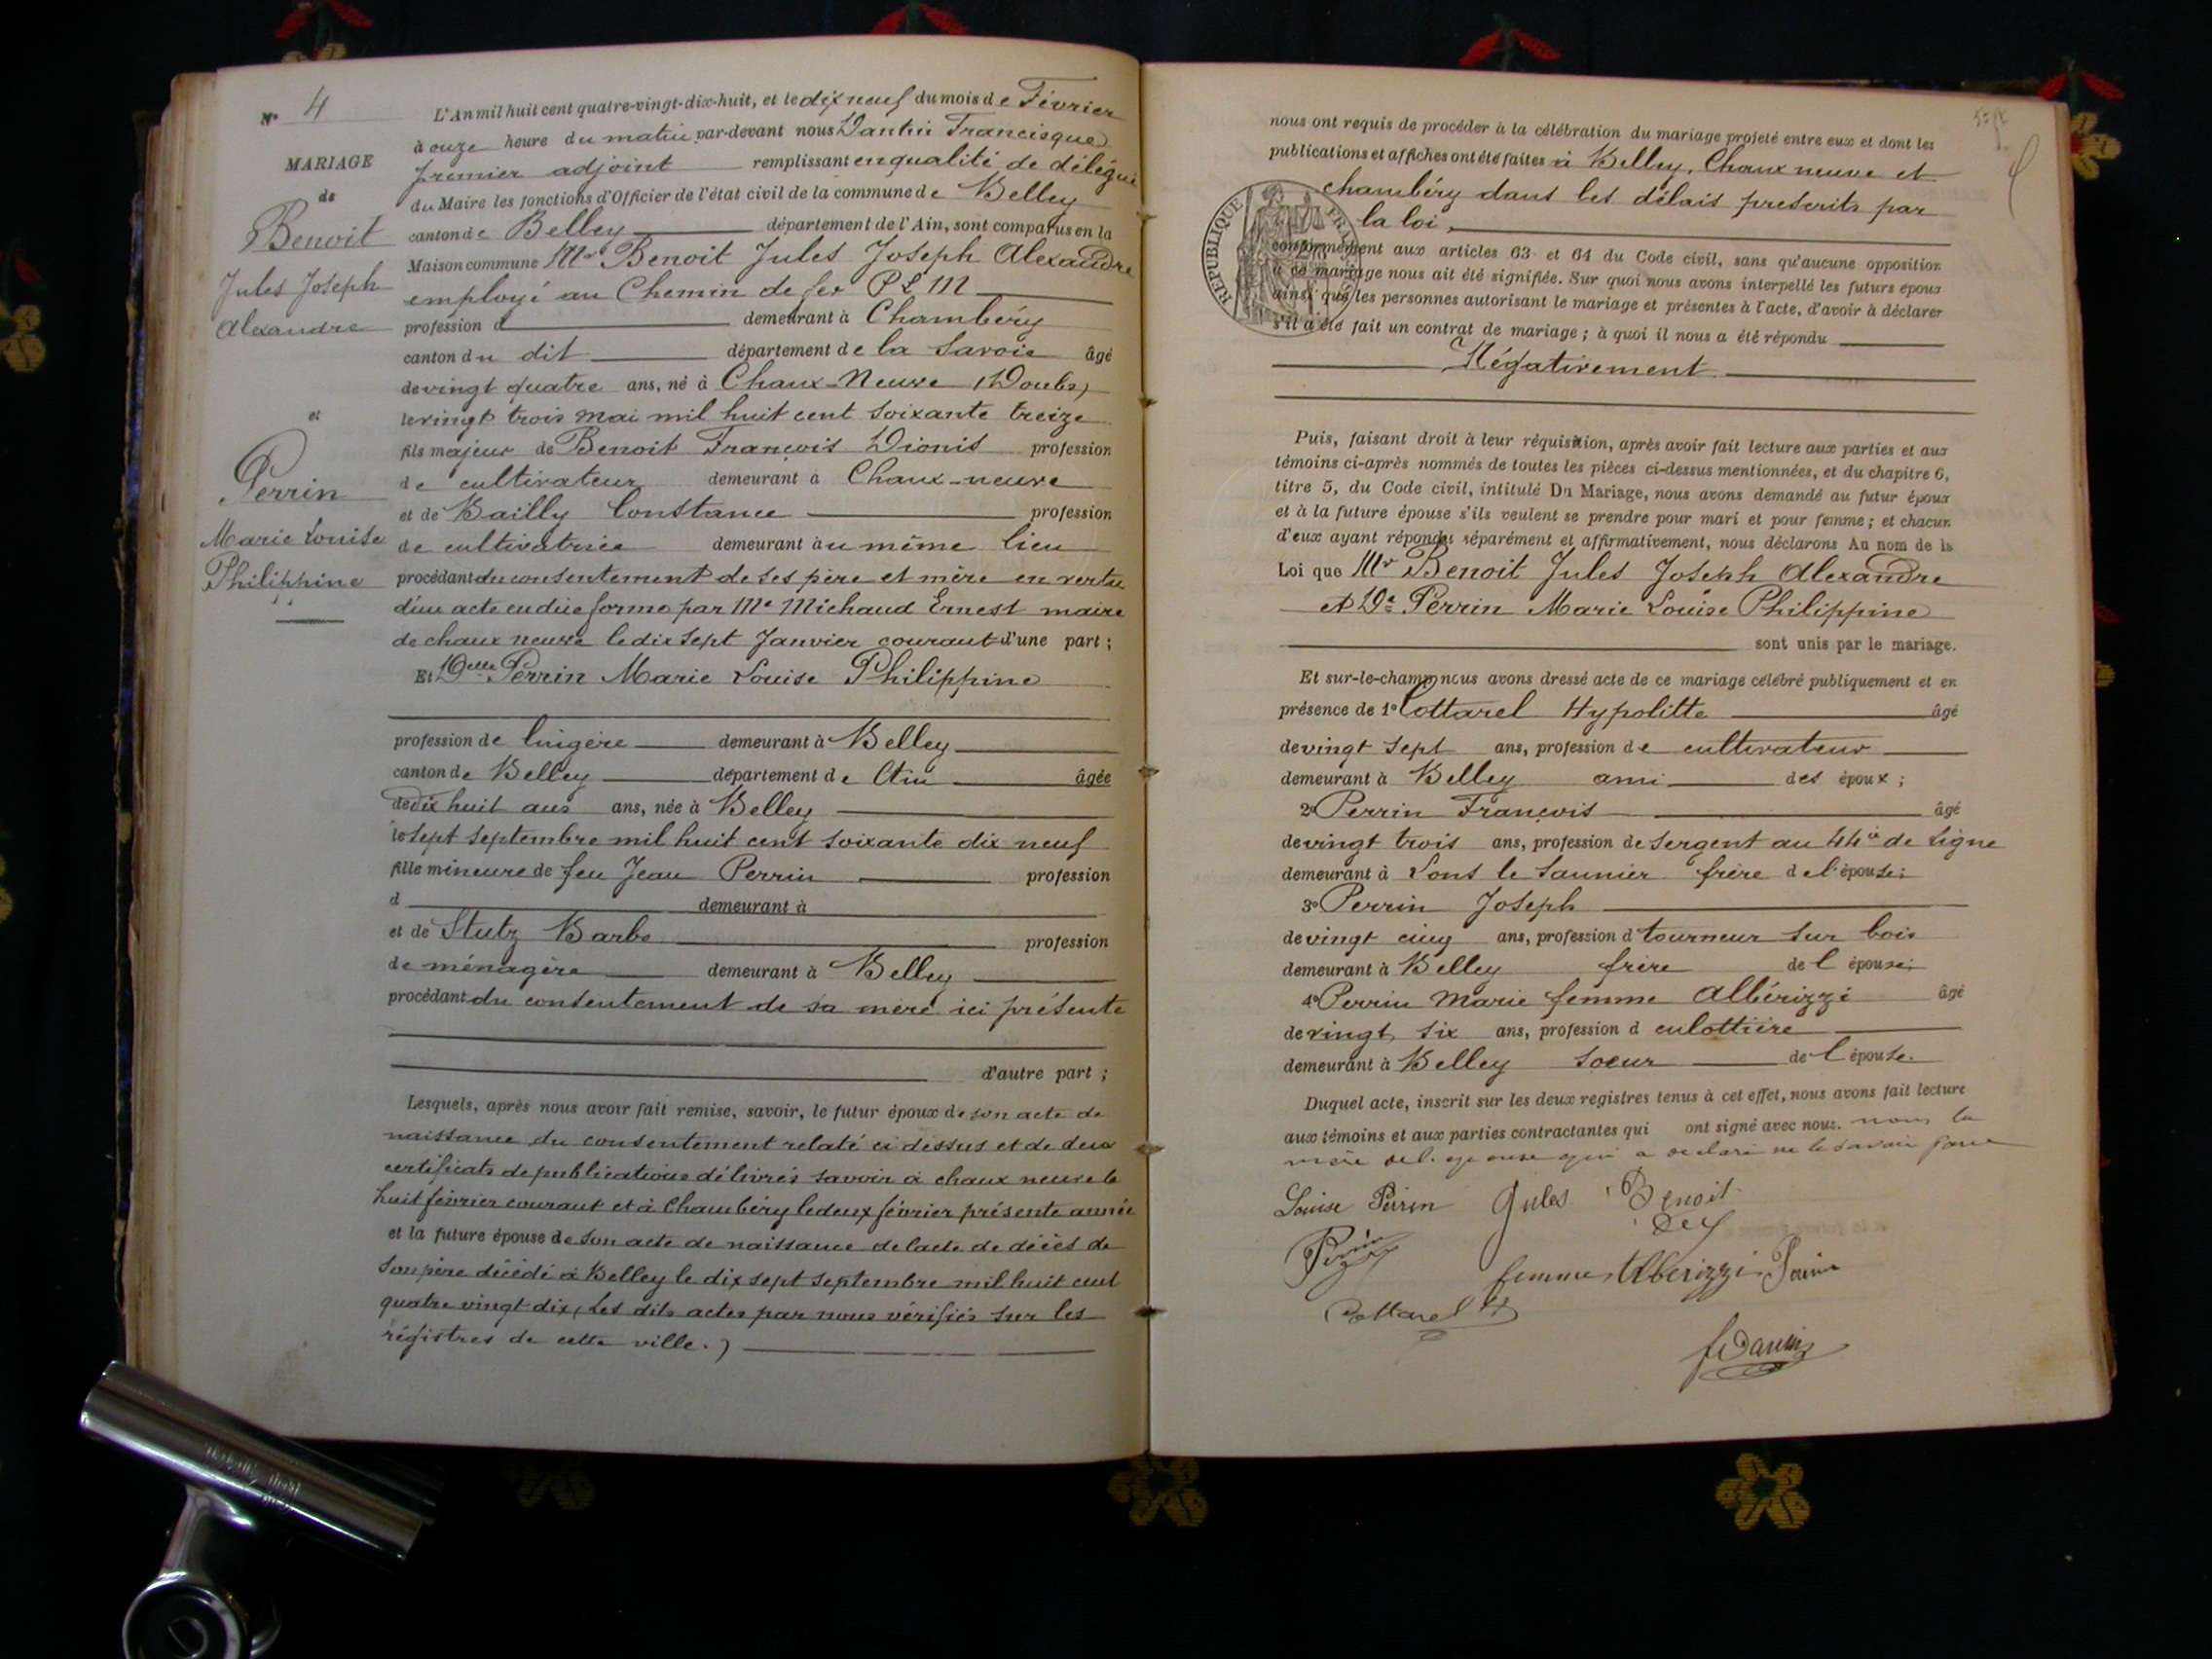 Nº 4
MARIAGE
de
Benoit
Jules Joseph
Alexandre
et
Perrin
Marie Louise
Philippine
L'An mil huit cent quatre-vingt-dix-huit, et le dix neuf du mois de Février
à onze heure du matin par-devant nous Dantin Francisque
premier adjoint remplissant en qualité de délégué
du Maire les fonctions d'Officier de l'état civil de la commune de Belley
canton de Belley département de l'Ain, sont comparus en la
Maison commune Mr Benoit Jules Joseph Alexandre
employé au Chemin de fer P L M
profession d demeurant à Chambéry
canton du dit département de la Savoie âgé
de vingt quatre ans, né à Chaux-Neuve (Doubs)
le vingt trois mai mil huit cent soixante treize
fils majeur de Benoit François Dionis profession
de cultivateur demeurant à Chaux-neuve
et de Bailly Constance profession
de cultivatrice demeurant au même lieu
procédant du consentement de ses père et mère en vertu
d'un acte en due forme par Me Michaud Ernest maire
de chaux neuve le dix sept Janvier courant d'une part ;
Et Delle Perrin Marie Louise Philippine
profession de lingère demeurant à Belley
canton de Belley département de Ain âgée
de dix huit ans ans, née à Belley
le sept septembre mil huit cent soixante dix neuf
fille mineure de feu Jean Perrin profession
d demeurant à
et de Stutz Barbe profession
de ménagère demeurant à Belley
procédant du consentement de sa mère ici présente
d'autre part ;
Lesquels, après nous avoir fait remise, savoir, le futur époux de son acte de
naissance du consentement relaté ci dessus et de deux
certificats de publications délivrés savoir à chaux neuve le
huit février courant et à Chambéry le deux février présente année
et la future épouse de son acte de naissance de l'acte de décès de
son père décédé à Belley le dix sept septembre mil huit cent
quatre vingt dix, (les dits actes par nous vérifiés sur les
régistres de cette ville.)
nous ont requis de procéder à la célébration du mariage projeté entre eux et dont les
publications et affiches ont été faites à Belley, Chaux neuve et
chambéry dans les délais prescrits par
la loi,
REPUBLIQUE FRA
conformément aux articles 63 et 64 du Code civil, sans qu'aucune opposition
à ce mariage nous ait été signifiée. Sur quoi nous avons interpellé les futurs époux
ainsi que les personnes autorisant le mariage et présentes à l'acte, d'avoir à déclarer
s'il a été fait un contrat de mariage ; à quoi il nous a été répondu
Négativement
Puis, faisant droit à leur réquisition, après avoir fait lecture aux parties et aux
témoins ci-après nommés de toutes les pièces ci-dessus mentionnées, et du chapitre 6,
titre 5, du Code civil, intitulé Du Mariage, nous avons demandé au futur époux
et à la future épouse s'ils veulent se prendre pour mari et pour femme ; et chacun
d'eux ayant répondu séparément et affirmativement, nous déclarons Au nom de la
Loi que Mr Benoit Jules Joseph Alexandre
et De Perrin Marie Louise Philippine
sont unis par le mariage.
Et sur-le-champ nous avons dressé acte de ce mariage célébré publiquement et en
présence de 1º Cottarel Hypolitte âgé
de vingt sept ans, profession de cultivateur
demeurant à Belley ami des époux ;
2º Perrin François âgé
de vingt trois ans, profession de sergent au 44ie de Ligne
demeurant à Lons le Saunier frère de l'épouse ;
3º Perrin Joseph
de vingt cinq ans, profession d tourneur sur bois
demeurant à Belley frère de l épouse ;
4º Perrin Marie femme Albérizzi âgé
de vingt six ans, profession d culottière
demeurant à Belley soeur de l épouse.
Duquel acte, inscrit sur les deux registres tenus à cet effet, nous avons fait lecture
aux témoins et aux parties contractantes qui ont signé avec nous. non la
mère de l. épouse qui a déclaré ne le savoir faire
Louise Perrin Jules Benoit
Perrin
femme Alberizzi Perrin
Cottarel H
f Dantin